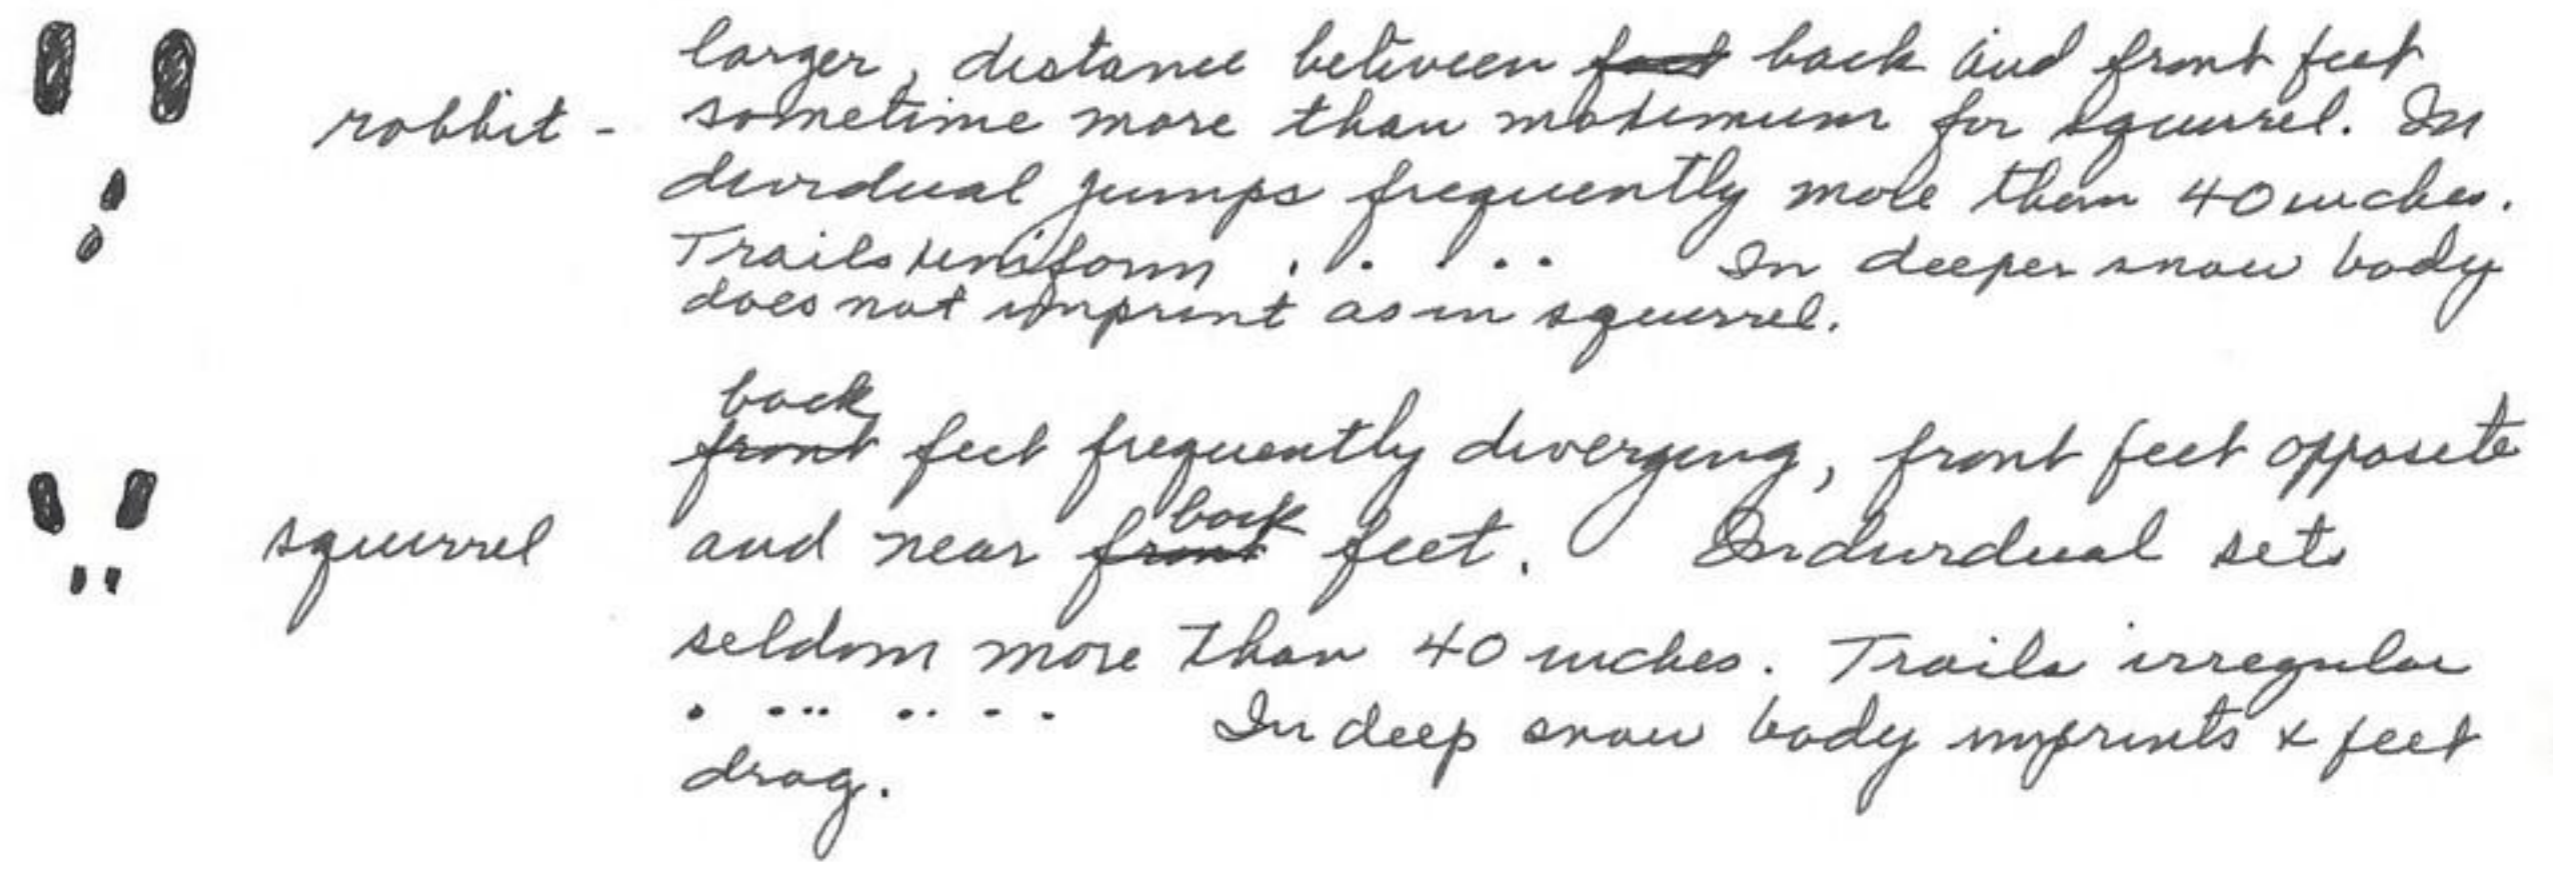 larger, distance between foot back and front feet
rabbit - sometime more than maximum for squirrel. In
dividual jumps frequently more than 40 inches.
Trails uniform . . . . . . In deeper snow body
does not imprint as in squirrel.
back
front feet frequently diverging, front feet opposite
back
squirrel and near front feet. Individual sets
seldom more than 40 inches. Trails irregular
. ... .. - - In deep snow body imprints & feet
drag.